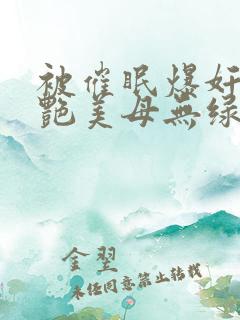 被催眠爆奸
艳美母無绿
金翌
未经同意禁止转载